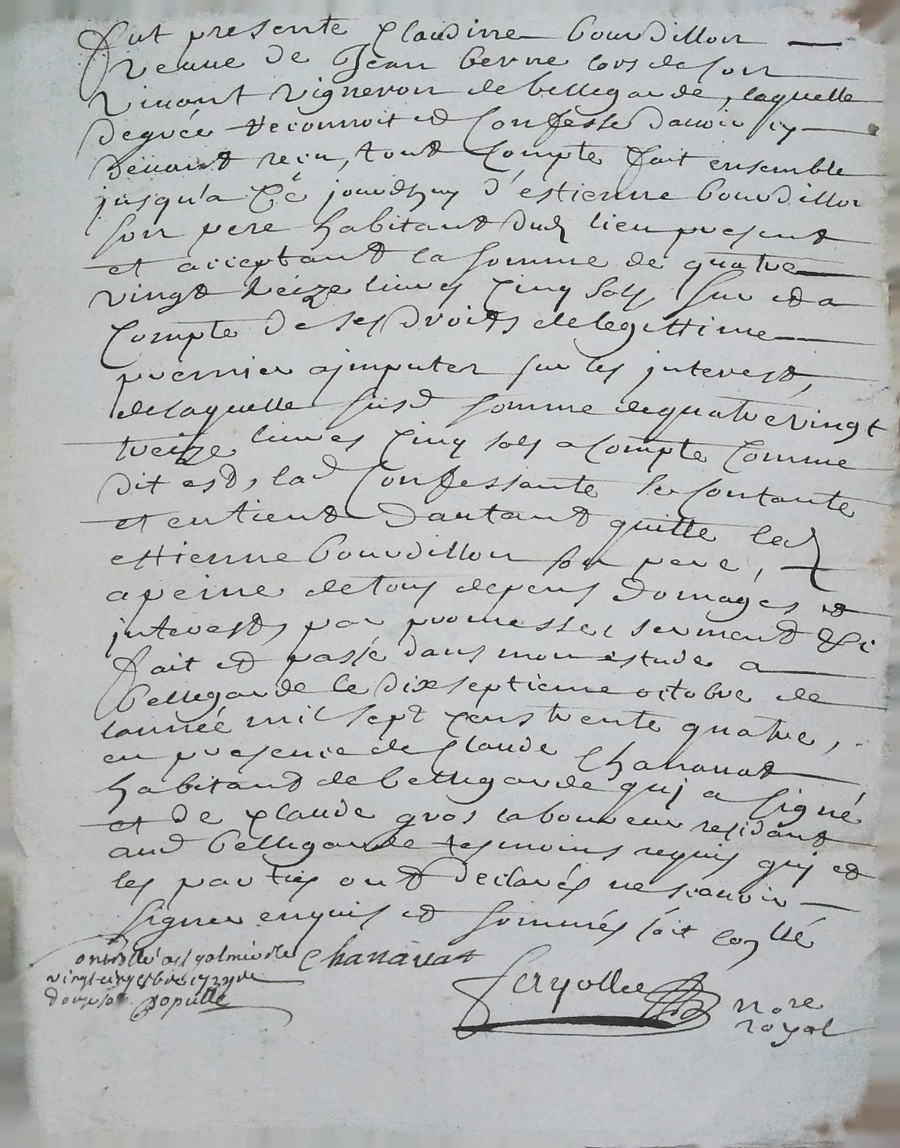 fut presente Claudine bourdillon
veuve de Jean berne lors de son
vivant vigneron de bellegarde, laquelle
de grée reconnoit et Confesse davoir cy
devant receu, tout Compte fait ensemble
jusqu'a Cé jourdhuy d'estienne bourdillon
son pere habitant dud lieu present
et acceptant la somme de quatre
vingt treize livres Cinq sols, sur et a
Compte de ses droits de legittime
premier a jmputer sur les jnterest,
de laquelle susd somme de quatre vingt
treize livres Cinq sols a Compte Comme
dit est, lad Confessante se Contante
et en tient d'autant quitte led
estienne bourdillon son pere,
a peine de tous depens domages et
jnterests par promesse, serment &c
fait et passé dans mon estude a
bellegarde le dix septieme octobre de
lanneé mil sept Cens trente quatre,
en presence de Claude Chanavat
habitant de bellegarde qui a signé
et de Claude gros laboureur residant
aud bellegarde tesmoins requis qui et
les parties ont declarés ne scavoir
signer enquis et sommés soit Con^lé
Chanavat
vingt cinq
nore
royal